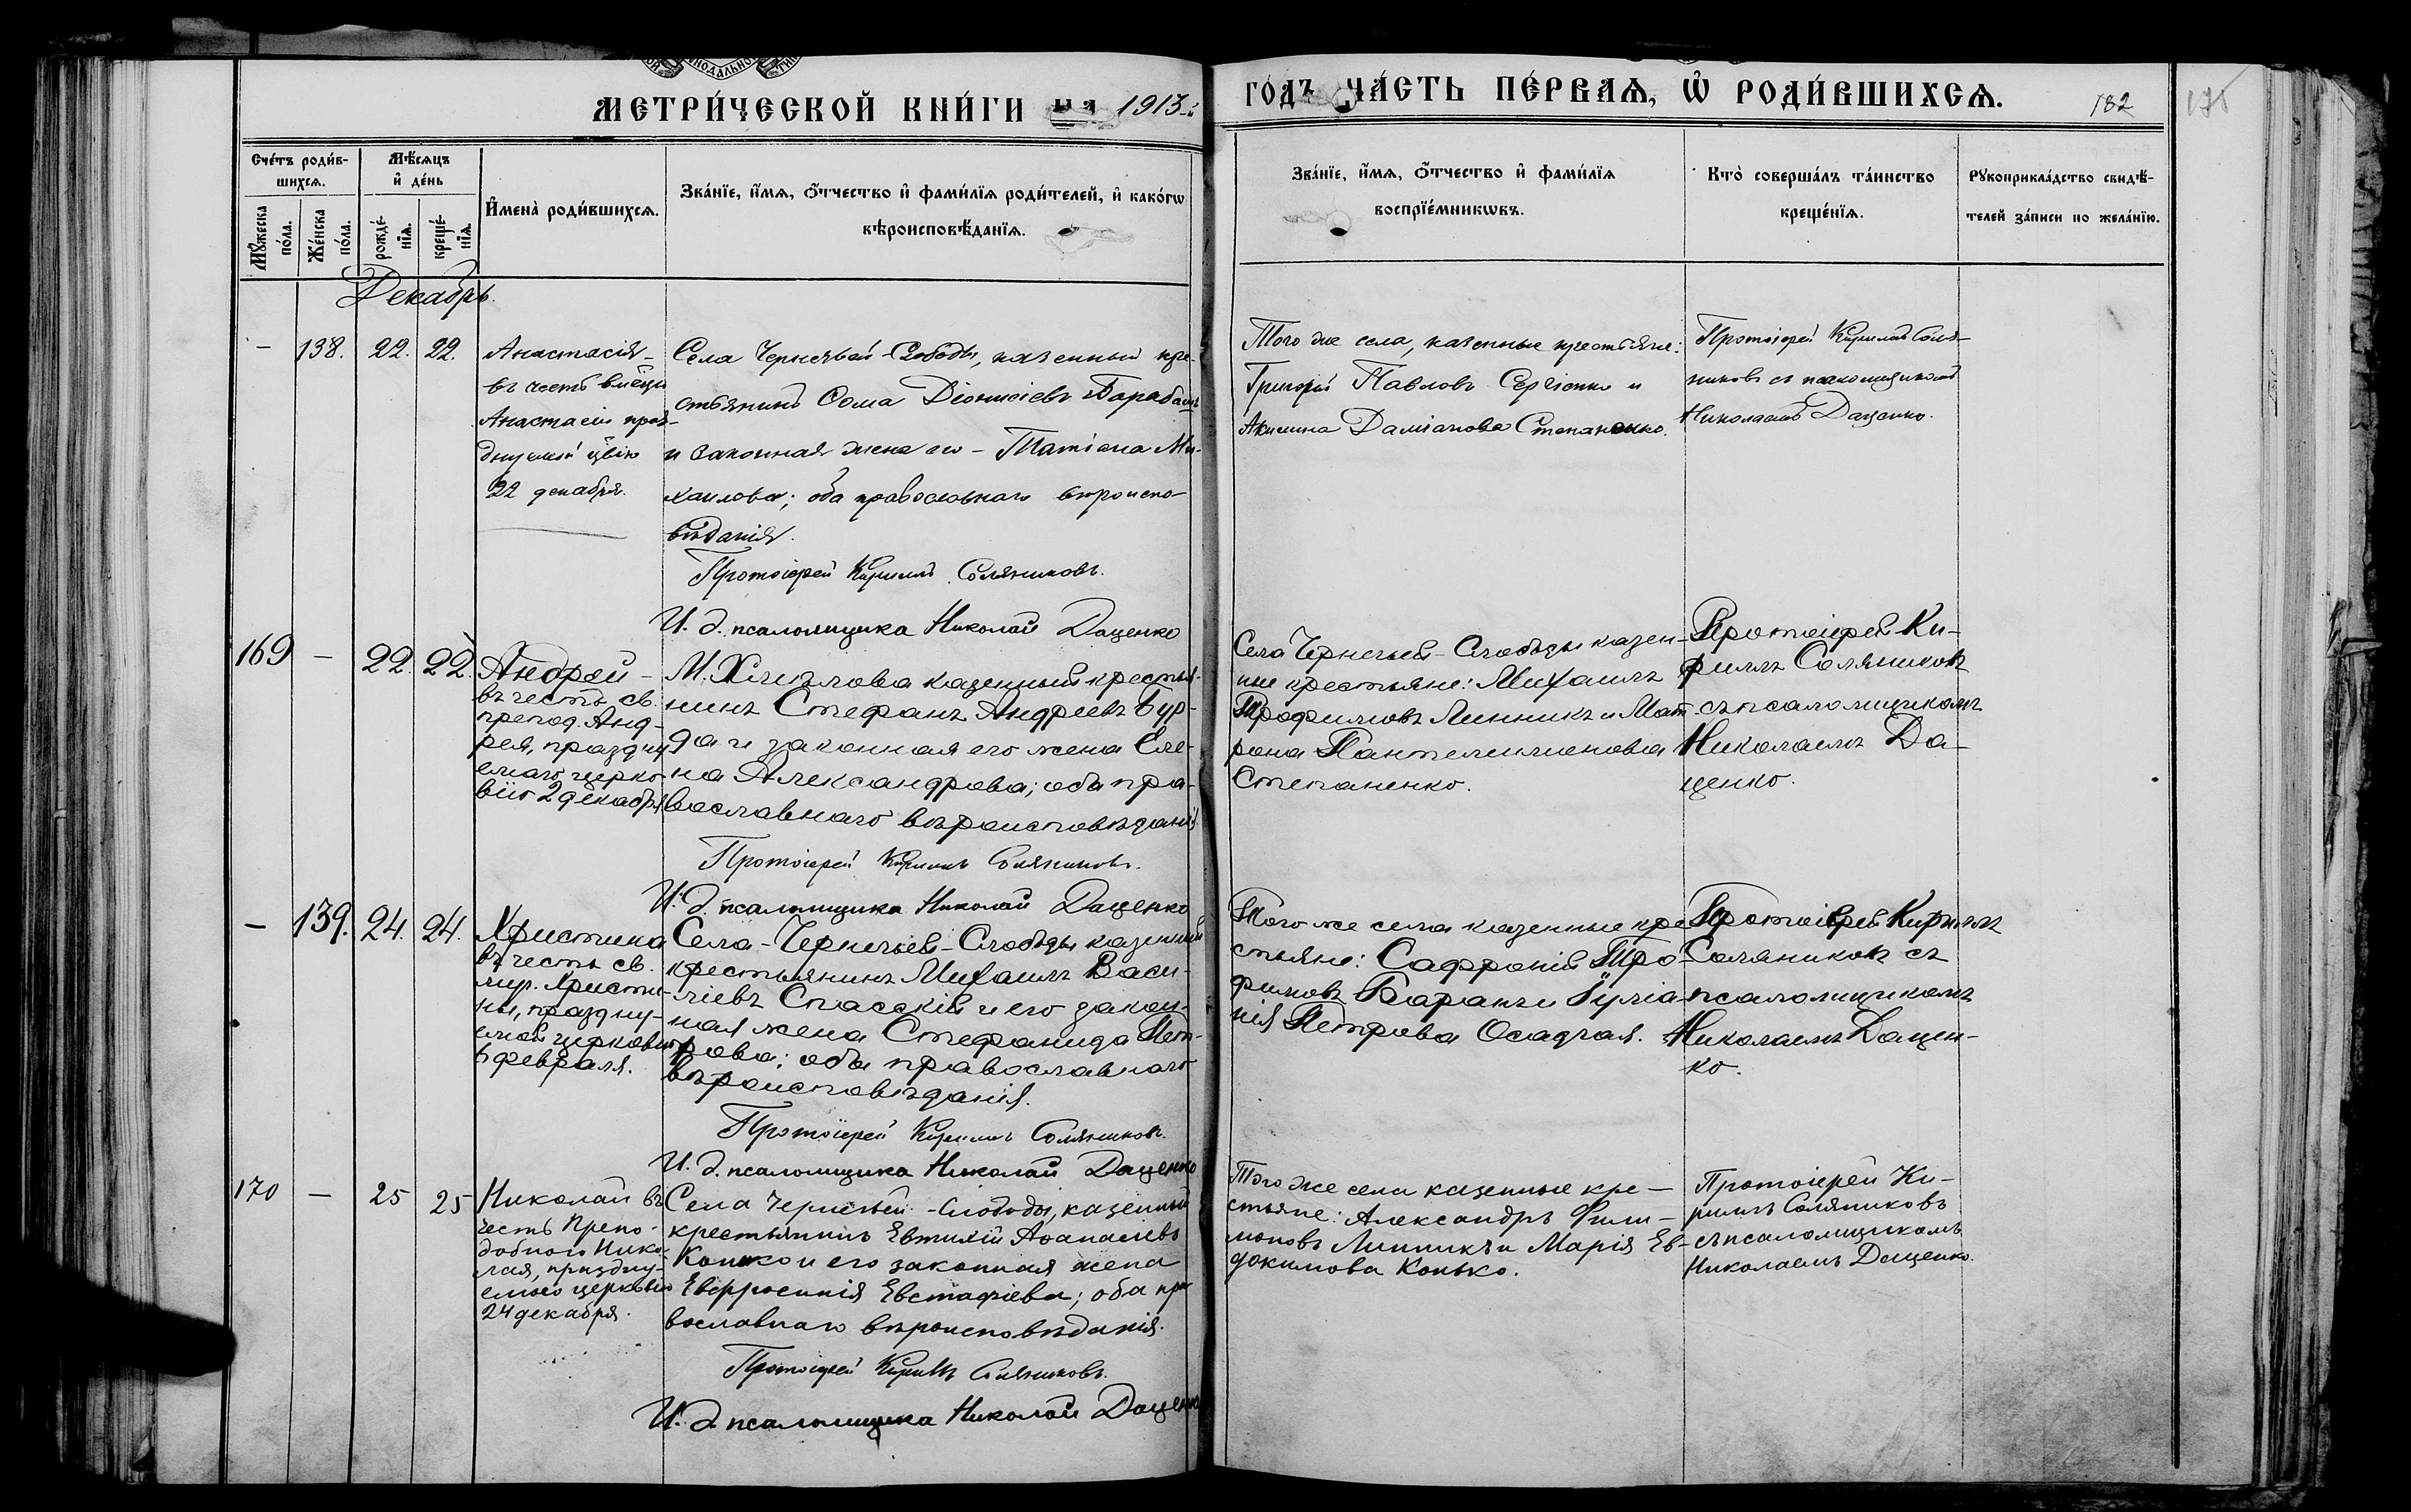 МЕТРИ́ЧЕСКОЙ КНИ́ГИ НА 1913-й
ГО́ДЪ ЧА́СТЬ ПЕ́РВАѦ, Ѡ҆ РОДИ́ВШИХСѦ.
182
175
Сче́тъ роди́в-
шихсѧ.
Мѣ́сѧцъ
и҆ де́нь
Мꙋ́жеска
по́ла.
Же́нска
по́ла.
рожде́-
нїѧ.
креще́-
нїѧ.
И҆мена̀ роди́вшихсѧ.
Зва́нїе, и҆́мѧ, ѻ҆́тчество и҆ фами́лїѧ роди́телей, и҆ како́гѡ
вѣроисповѣ́данїѧ.
Зва́нїе, и҆́мѧ, ѻ҆́тчество и҆ фами́лїѧ
воспрїе́мникѡвъ.
Кто̀ соверша́лъ та́инство
креще́нїѧ.
Рꙋкоприкла́дство свидѣ́-
телей за́писи по жела́нїю.
Декабрь.
— 138. 22. 22.
Анастасія —
въ честь
Анастасіи празд-
22 декабря.
Села Чернечьей-Слободы, казенный кре-
стьянинъ Сома Діонисіевъ Барабашъ
и законная жена его — Татіана Ми-
хаилова; оба православнаго вѣроиспо-
вѣданія.
Протоіерей Кириллъ Соляниковъ.
И. д. псаломщика Николай Даценко
Того же села, казенные крестьяне:
Григорій Павловъ Сергіенко и
Акилина Даміанова Степаненко.
Протоіерей Кириллъ Соля-
никовъ съ псаломщикомъ
Николаемъ Даценко.
169 — 22. 22.
Андрей —
въ честь св.
препод. Анд-
рея, праздну
емаго церко-
вію 2 декабря
М. Хмѣлова казенный крестья-
нинъ Стефанъ Андреевъ Бур-
да и законная его жена Еле-
на Александрова; оба пра-
вославнаго вѣроисповѣданія.
Протоіерей Кириллъ Соляниковъ.
И. д. псаломщика Николай Даценко
Села Чернечьей-Слободы казен-
ные крестьяне: Михаилъ
Трофимовъ Линникъ и Мат-
рона Пантелеимонова
Степаненко.
Протоіерей Ки-
риллъ Соляниковъ
съ псаломщикомъ
Николаемъ Да-
ценко.
— 139. 24. 24.
Христина
въ честь св.
муч. Христи-
ны, праздну-
емой церковію
6 февраля.
Села-Чернечьей-Слободы казенный
крестьянинъ Михаилъ Васи-
ліевъ Спасскій и его закон-
ная жена Стефанида Пет-
рова; оба православнаго
вѣроисповѣданія.
Протоіерей Кириллъ Соляниковъ.
И. д. псаломщика Николай Даценко
Того же села казенные кре-
стьяне: Сафроній Тро-
фимовъ Баранъ и Іуліа-
нія Петрова Осадчая.
Протоіерей Кириллъ
Соляниковъ съ
псаломщикомъ
Николаемъ Дацен-
ко.
170 — 25 25
Николай въ
честь Препо-
добного Нико-
лая, праздну-
емого церковью
24 декабря.
Села Чернечьей-Слободы, казенный
крестьянинъ Евтихій Аѳанасіевъ
Конько и его законная жена
Евфросинія Евстафіева; оба пра
вославнаго вѣроисповѣданія.
Протоіерей Кириллъ Соляниковъ.
И. д. псаломщика Николай Даценко
Того же села казенные кре-
стьяне: Александръ Фили-
моновъ Линникъ и Марія Ев-
докимова Конько.
Протоіерей Ки-
риллъ Соляниковъ
съ псаломщикомъ
Николаемъ Даценко.